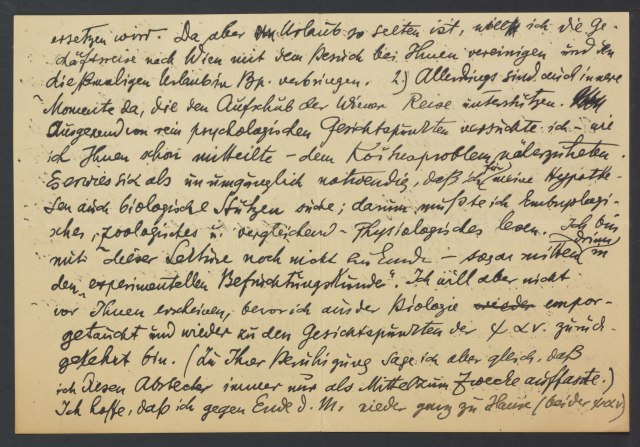 ersetzen wird. Da aber Urlaub so selten ist, will ich die Ge-
däftsreise nach Wien mit dem Besuch bei Ihnen vereinigen und den
dießmaligen Urlaub in Bp. verbringen. 2.) Allerdings sind auch innere
Momente da, die den Aufschub der Wiener Reise unterstützen.
Ausgehend von rein psychologischen Gesichtspunkten versuchte ich – wie
ich Ihnen schon mitteilte – dem Koitusproblem näherzutreten.
Es erwies sich als unumgänglich notwendig, daß ich für meine Hypothe-
sen auch biologische Stützen suche; darum mußte ich Embryologi-
sches, zoologisches u. vergleichend-Physiologisches lesen. Ich bin
mit dieser Lektüre noch nicht zu Ende – sogar mitten drinn in
den "experimentellen Befruchtungskunde". Ich will aber nicht
vor Ihnen erscheinen, bevor ich aus der Biologie wieder empor-
getaucht und wieder zu den Gesichtspunkten der ψαν. zurück-
gekehrt bin. (Zu Ihrer Beruhigung sage ich aber gleich, daß
ich diesen Abstecher immer nur als Mittel zum Zwecke auffasste.)
Ich hoffe, daß ich gegen Ende d. M. wieder ganz zu Hause (bei der ψαν)